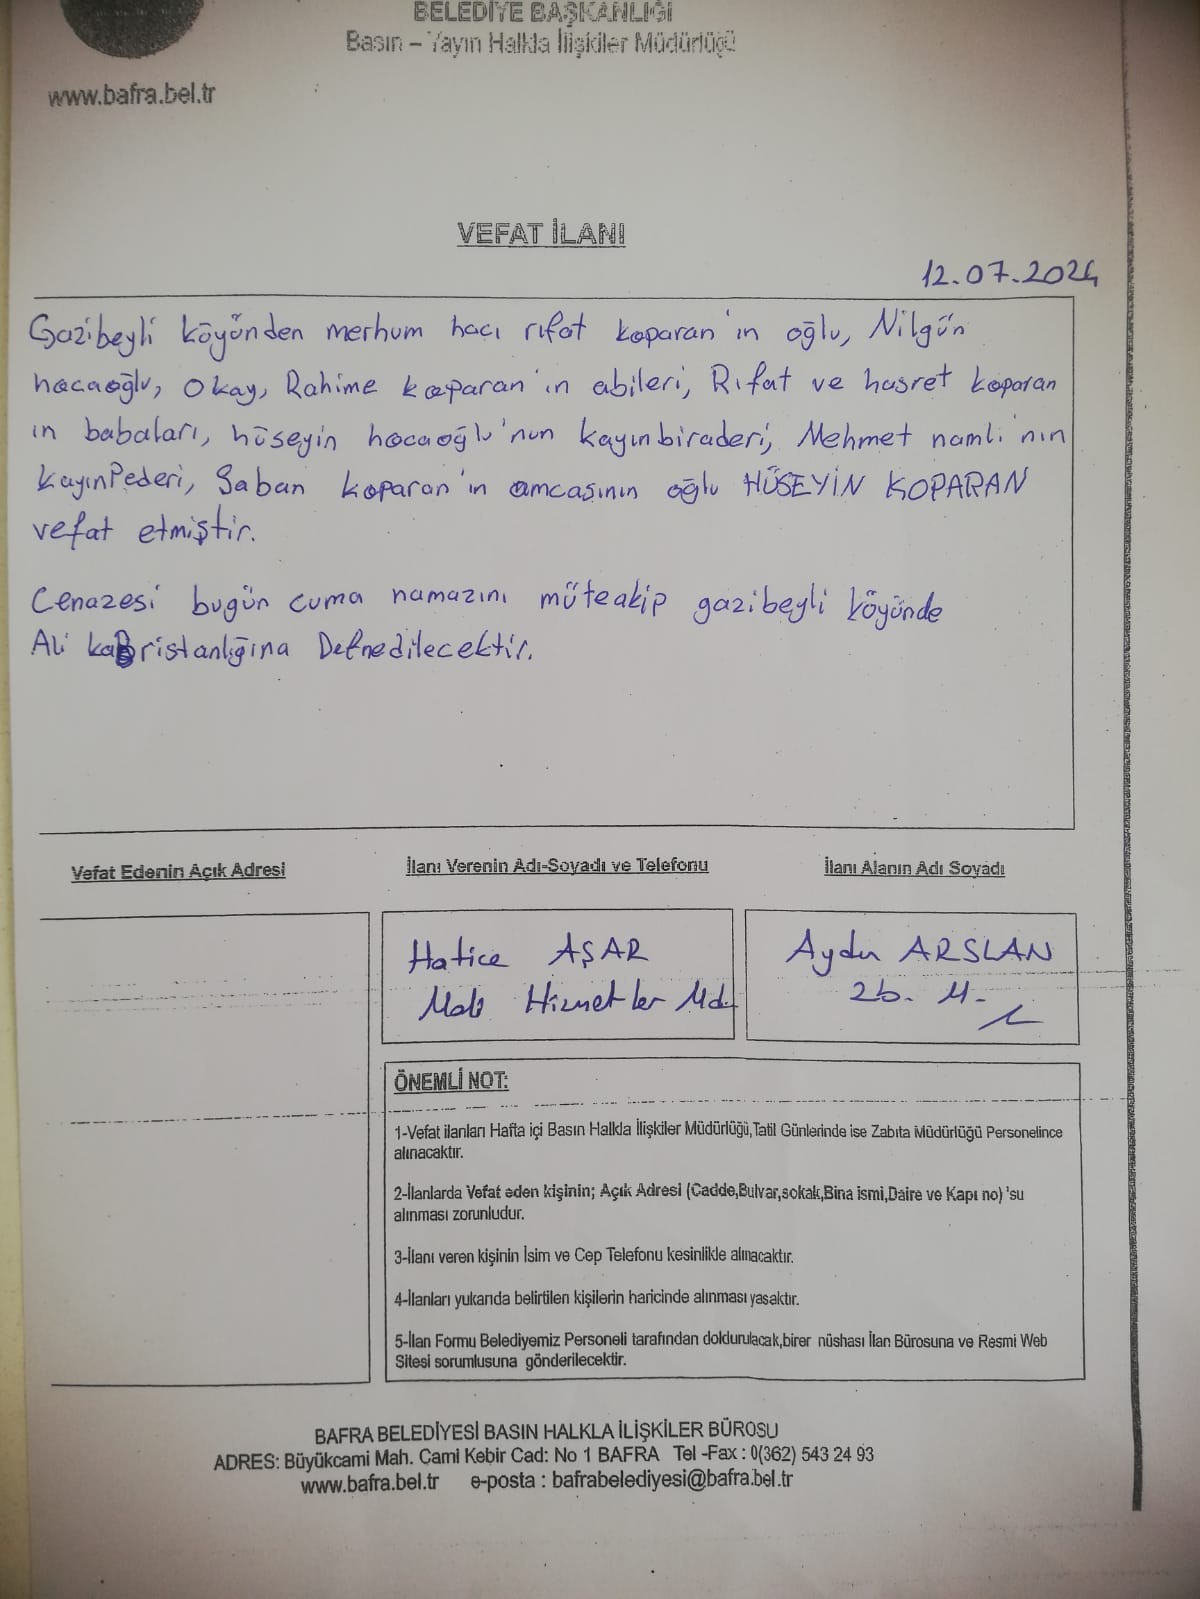 BELEDİYE BAŞKANLIĞI
Basın – Yayın Halkla İlişkiler Müdürlüğü
www.bafra.bel.tr
VEFAT İLANI
12.07.2024
Gazibeyli köyünden merhum hacı rıfat koparan'ın oğlu, Nilgün
hocaoğlu, Okay, Rahime koparan'ın abileri, Rıfat ve hasret koparan
ın babaları, hüseyin hocaoğlu'nun kayınbiraderi, Mehmet namlı'nın
kayınPederi, Şaban koparan'ın amcasının oğlu HÜSEYİN KOPARAN
vefat etmiştir.
Cenazesi bugün cuma namazını müteakip gazibeyli köyünde
Ali kaBristanlığına Defnedilecektir.
Vefat Edenin Açık Adresi
İlanı Verenin Adı-Soyadı ve Telefonu
İlanı Alanın Adı Soyadı
Hatice AŞAR
Mali Hizmetler Md.
Aydın ARSLAN
Zb. M.
ÖNEMLİ NOT:
1-Vefat ilanları Hafta içi Basın Halkla İlişkiler Müdürlüğü,Tatil Günlerinde ise Zabıta Müdürlüğü Personelince
alınacaktır.
2-İlanlarda Vefat eden kişinin; Açık Adresi (Cadde,Bulvar,sokak,Bina ismi,Daire ve Kapı no) 'su
alınması zorunludur.
3-İlanı veren kişinin İsim ve Cep Telefonu kesinlikle alınacaktır.
4-İlanları yukarıda belirtilen kişilerin haricinde alınması yasaktır.
5-İlan Formu Belediyemiz Personeli tarafından doldurulacak,birer nüshası İlan Bürosuna ve Resmi Web
Sitesi sorumlusuna gönderilecektir.
BAFRA BELEDİYESİ BASIN HALKLA İLİŞKİLER BÜROSU
ADRES: Büyükcami Mah. Cami Kebir Cad: No 1 BAFRA Tel -Fax : 0(362) 543 24 93
www.bafra.bel.tr e-posta : bafrabelediyesi@bafra.bel.tr